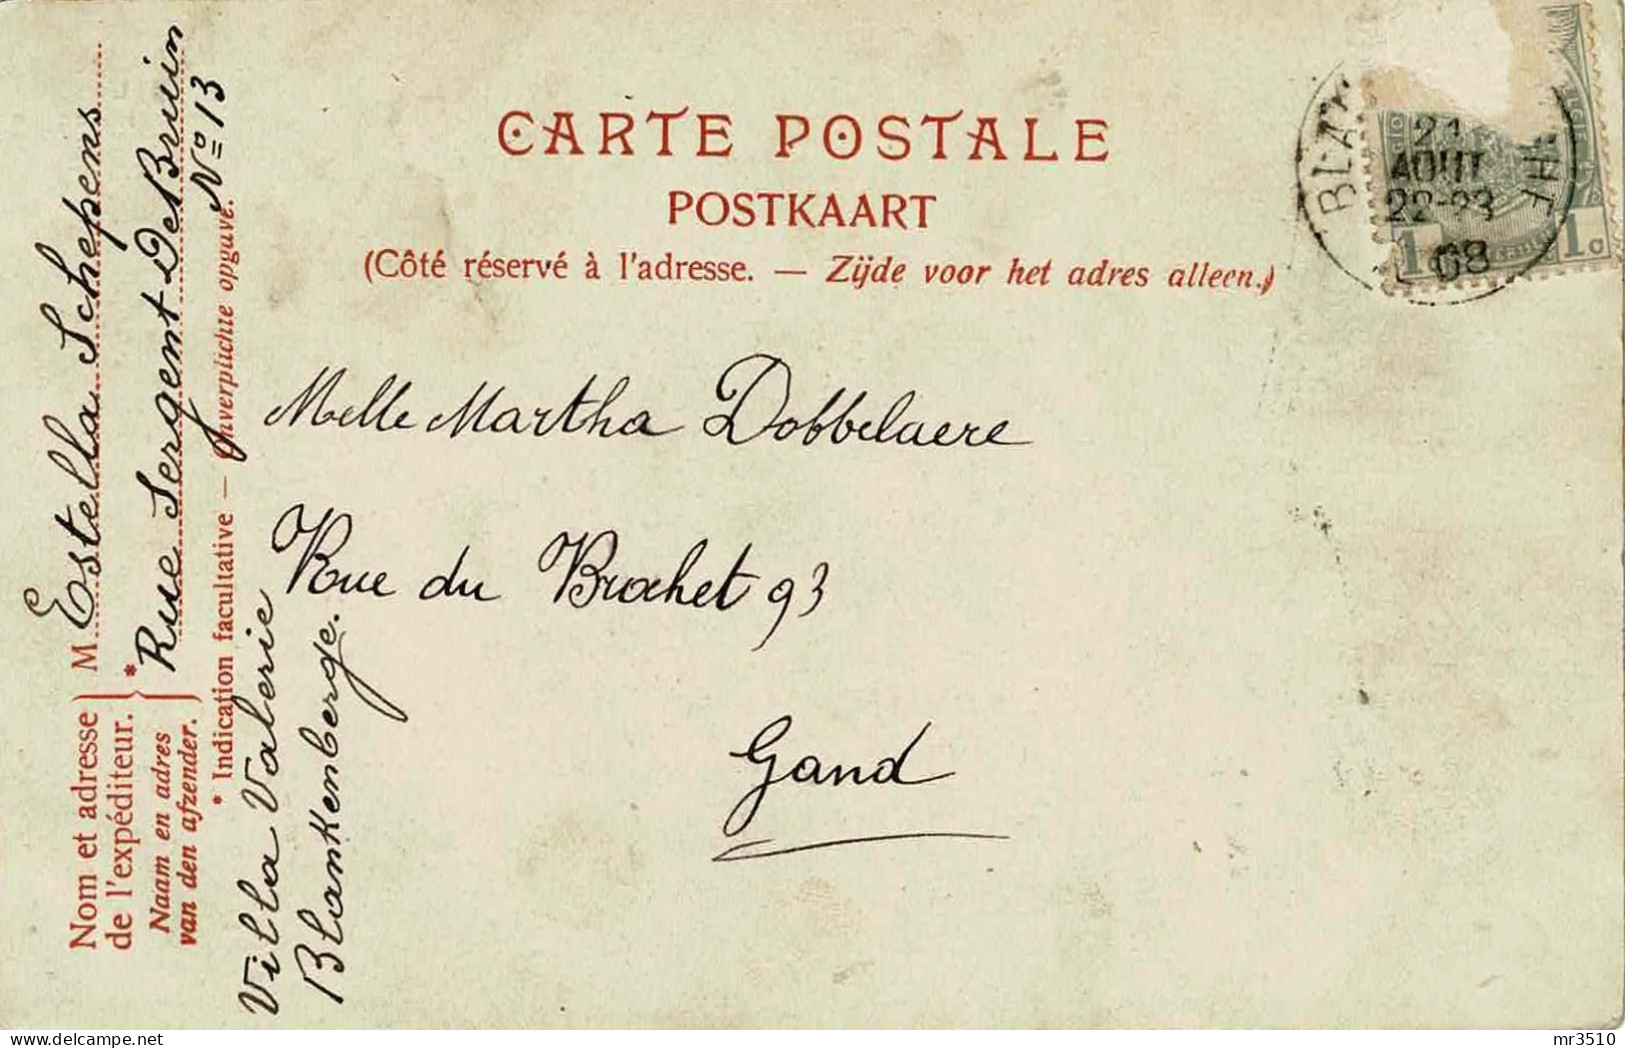 CARTE POSTALE
POSTKAART
(Côté réservé à l'adresse. — Zijde voor het adres alleen.)
21
AOUT
22-23
08
HE
1c
Melle Martha Dobbelaere
Rue du Brochet 93
Gand
Nom et adresse
de l'expéditeur.
Naam en adres
van den afzender.
M Estella Schepens
* Rue Sergent De Bruin
Nº 13
* Indication facultative — Onverplichte opgave.
Villa Valerie
Blankenberge.
mr3510